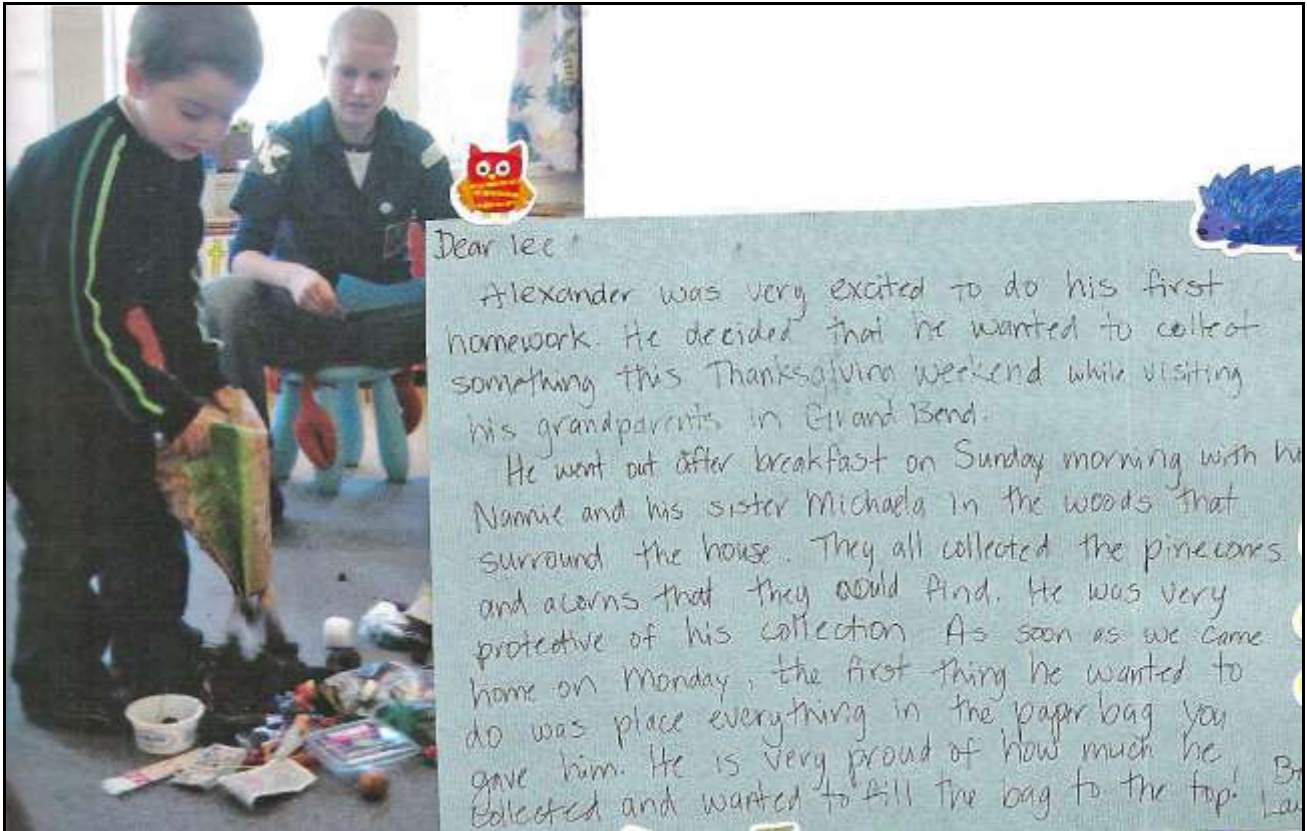 Dear lee
Alexander was very excited to do his first
homework. He decided that he wanted to collect
something this Thanksgiving weekend while visiting
his grandparents in Grand Bend.
He went out after breakfast on Sunday morning with
Nannie and his sister Michaela in the woods that
surround the house. They all collected the pinecones
and acorns that they could find. He was very
protective of his collection As soon as we came
home on Monday, the first thing he wanted to
do was place everything in the paper bag you
gave him. He is very proud of how much he
collected and wanted to fill the bag to the top!